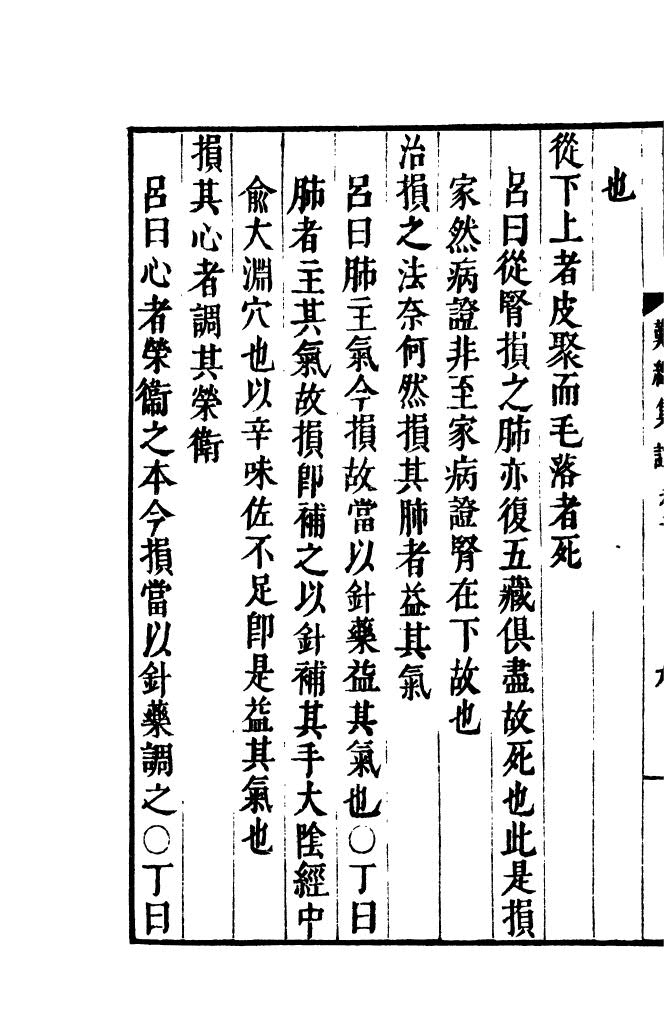 也
從下上者皮聚而毛落者死
呂曰從腎損之肺亦復五藏俱盡故死也此是損
家然病證非至家病證腎在下故也
治損之法奈何然損其肺者益其氣
呂曰肺主氣今損故當以針藥益其氣也○丁曰
肺者主其氣故損即補之以針補其手大陰經中
俞大淵穴也以辛味佐不足即是益其氣也
損其心者調其榮衛
呂曰心者榮衞之本今損當以針藥調之○丁曰